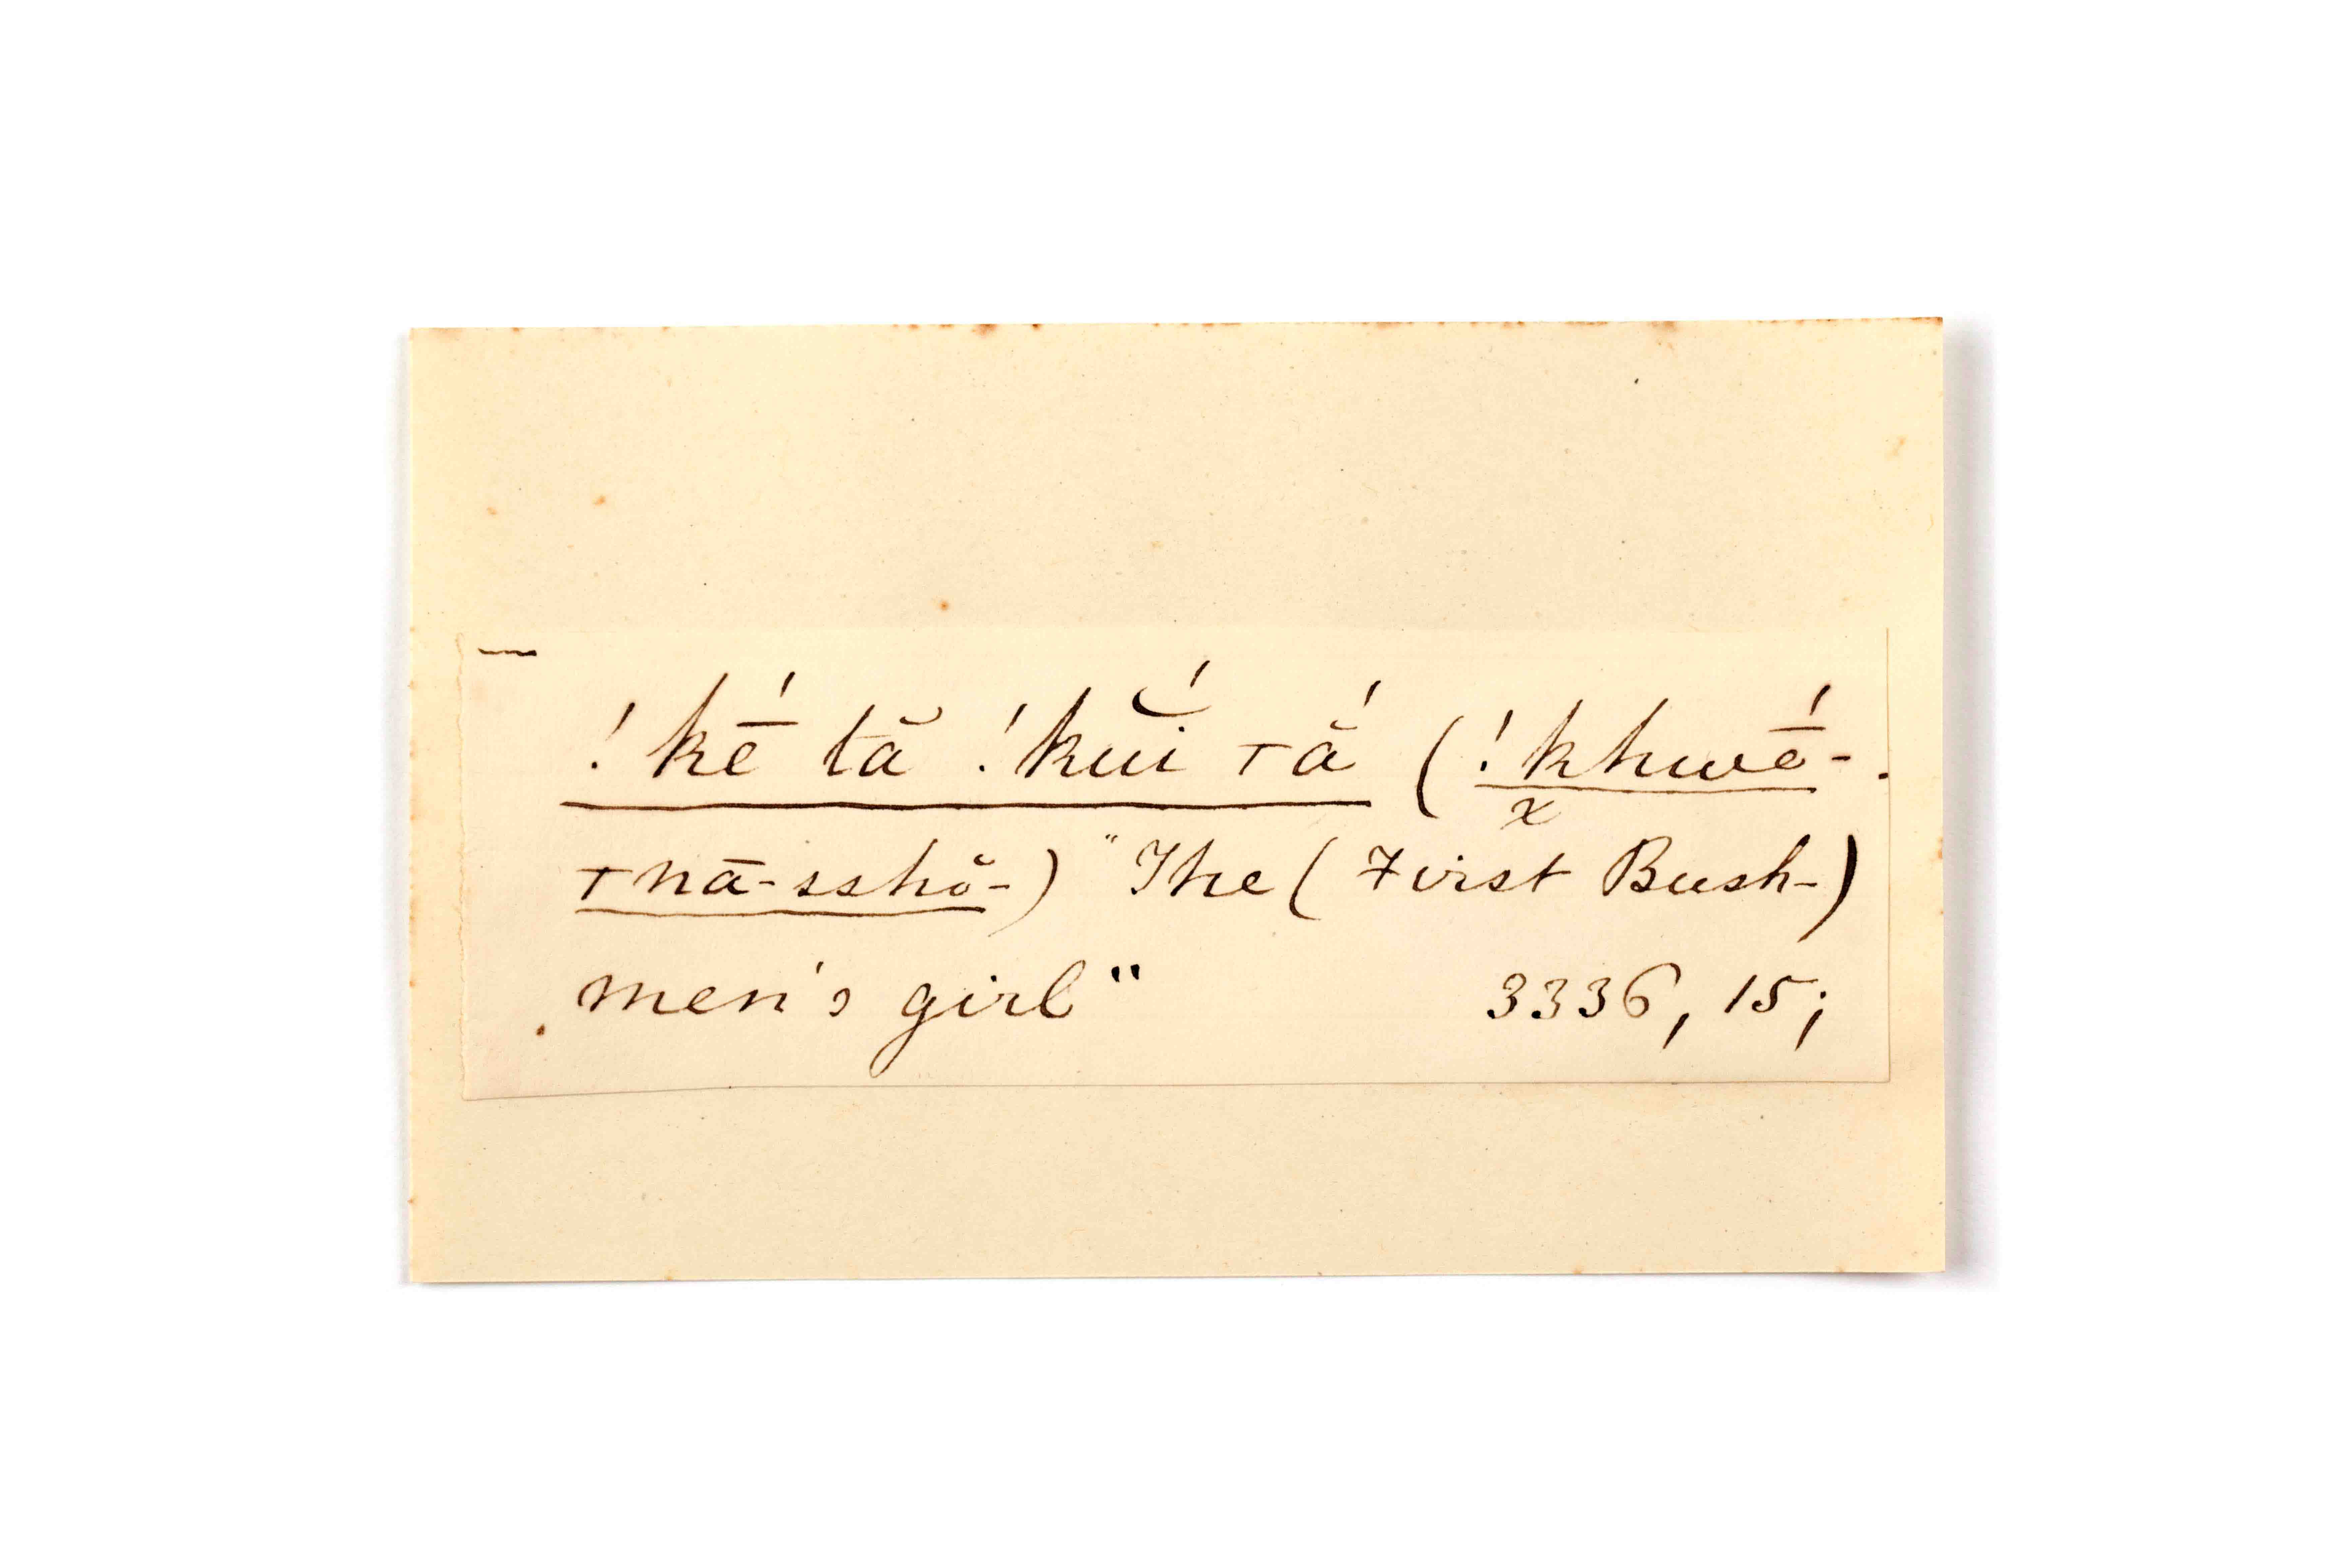 —
!kḗ tă !kŭ́i ⊤ắ (!khwḗ-.
x
⊤nā-sshŏ-) "The (First Bush-)
men's girl" 3336, 15;